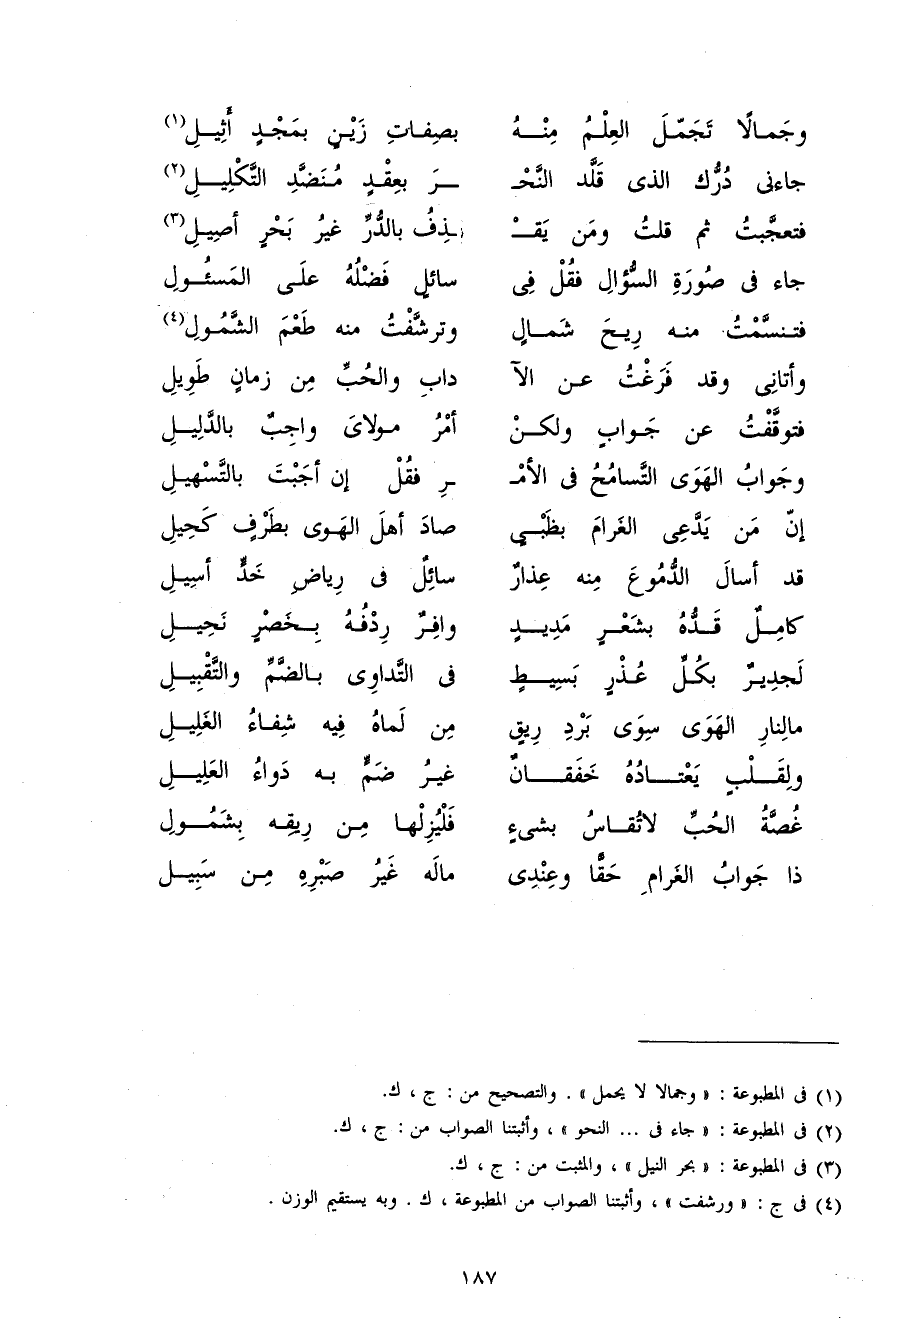 وجَمالًا تَجَمّلَ العِلْمُ مِنْهُ بصِفاتٍ زَيْنٍ بمَجْدٍ أَثِيلِ(١)
جاءنى دُرُّك الذى قَلَّد النَّحْـ ـرَ بعِقْدٍ مُنَضَّدِ التَّكْلِيلِ(٢)
فتعجَّبتُ ثم قلتُ ومَن يَقْـ ـذِفُ بالدُّرِّ غيرُ بَحْرٍ أصِيلِ(٣)
جاء فى صُورَةِ السُّؤَالِ فقُلْ فِى سائلٍ فَضْلُهُ علَى المَسئُولِ
فتنسَّمْتُ منه رِيحَ شَمالٍ وترشَّفْتُ منه طَعْمَ الشَّمُولِ(٤)
وأتانِى وقد فَرَغْتُ عن الآ دابِ والحُبِّ مِن زمانٍ طَوِيلِ
فتوقَّفْتُ عن جَوابٍ ولكنْ أمْرُ مولاىَ واجِبٌ بالدَّلِيلِ
وجَوابُ الهَوَى التَّسامُحُ فى الأمْـ ـرِ فقُلْ إن أجَبْتَ بالتَّسْهِيلِ
إنّ مَن يَدَّعِى الغَرامَ بظَبْىٍ صادَ أهلَ الهَوى بطَرْفٍ كَحِيلِ
قد أسالَ الدُّمُوعَ مِنه عِذارٌ سائلٌ فى رِياضِ خَدٍّ أسِيلِ
كامِلٌ قَدُّهُ بشَعْرٍ مَدِيدٍ وافِرٌ رِدْفُهُ بخَصْرٍ نَحِيلِ
لَجدِيرٌ بكُلِّ عُذْرٍ بَسِيطٍ فى التَّداوِى بالضَّمِّ والتَّقْبِيلِ
مالِنارِ الهَوَى سِوَى بَرْدِ رِيقٍ مِن لَماهُ فِيه شِفاءُ الغَلِيلِ
ولِقَلْبٍ يَعْتادُهُ خَفَقانٌ غيرُ ضَمٍّ به دَواءُ العَلِيلِ
غُصَّةُ الحُبِّ لاتُقاسُ بشىءٍ فَلْيُزِلْها مِن رِيقه بِشَمُولِ
ذا جَوابُ الغَرامِ حَقًّا وعِنْدِى مالَه غَيرُ صَبْرِهِ مِن سَبِيلِ
(١) فى المطبوعة : « وجمالا لا يحمل » . والتصحيح من : ج ، ك.
(٢) فى المطبوعة : « جاء فى ... النحو » ، وأثبتنا الصواب من : ج ، ك.
(٣) فى المطبوعة : « بحر النيل » ، والمثبت من : ج ، ك.
(٤) فى ج : « ورشفت » ، وأثبتنا الصواب من المطبوعة ، ك . وبه يستقيم الوزن .
١٨٧